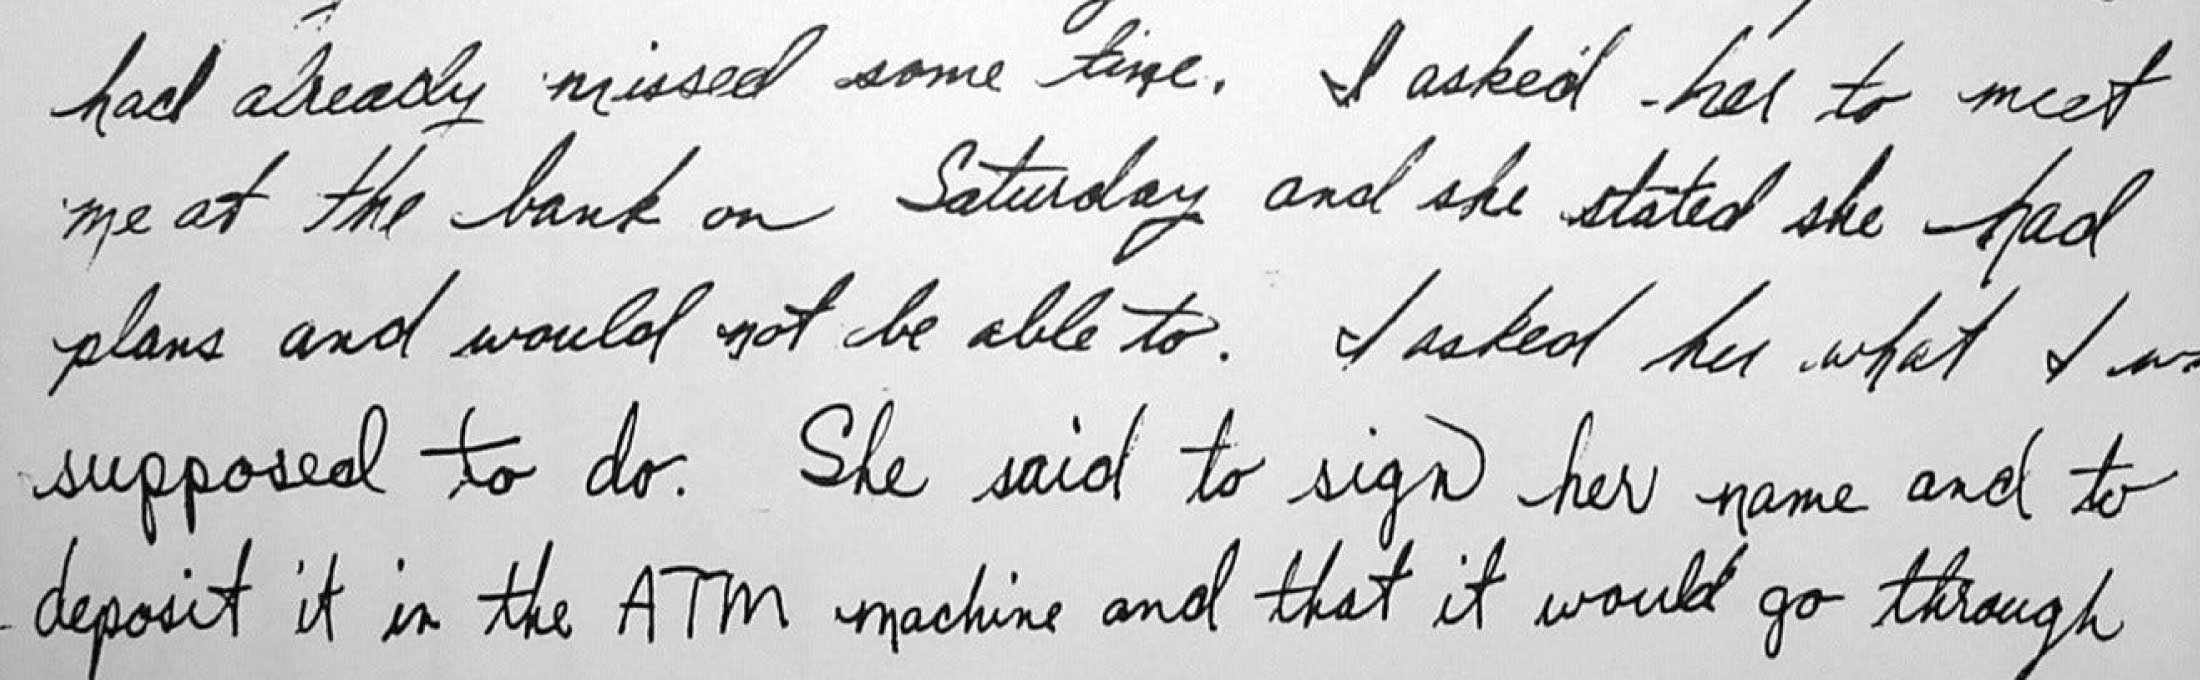 had already missed some time. I asked her to meet
me at the bank on Saturday and she stated she had
plans and would not be able to. I asked her what I
supposed to do. She said to sign her name and to
deposit it in the ATM machine and that it would go through